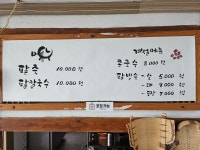 팥죽 10.000 원
팥칼국수 10.000 원
계절메뉴
콩국수 8.000 원
팥빙수 - 소 5.000 원
- 대 8.000 원